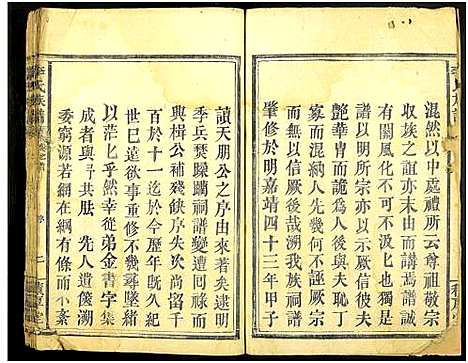 混然以中處禮所云尊祖敬宗
收族之誼亦末由而講焉譜誠
有關風化不可不汲汲也我李
譜以明所宗亦以示厥信彼夫
艷華胄而詭為人後與夫恥丁
家而混納人先幾何不誣厥宗
而無以信厥後哉溯我族譜
肇修於明嘉靖四十三年甲子
讀天朋公之序由來著矣逮明
季兵燹躁躪祠譜變遭回祿
與楫公補殘缺序失次尚留千
百於十一迄於今歷年既久紀
世疑似欲事重修不幾尋墜緒
以茫茫乎然幸從弟金書字集
成者與予共肱先人遺溯
委窮源若網在綱有條而不紊
李氏族譜
序